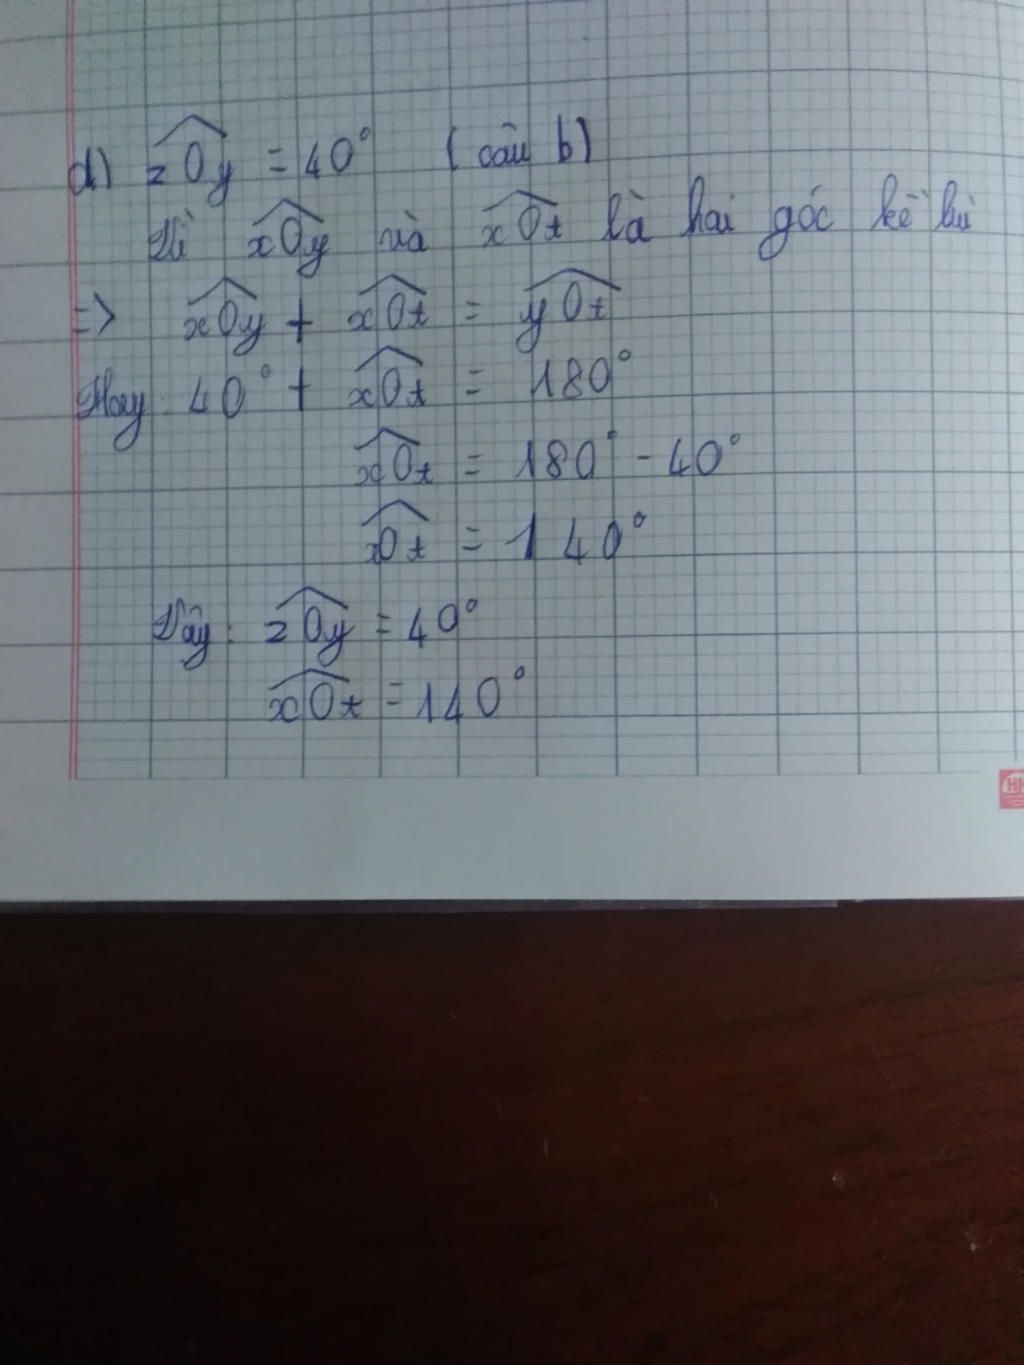 d) zOy = 40° (câu b)
Vì xOy và xOt là hai góc kề bù
=> xOy + xOt = yOt
Hay 40° + xOt = 180°
xOt = 180° - 40°
xOt = 140°
Vậy: zOy = 40°
xOt = 140°